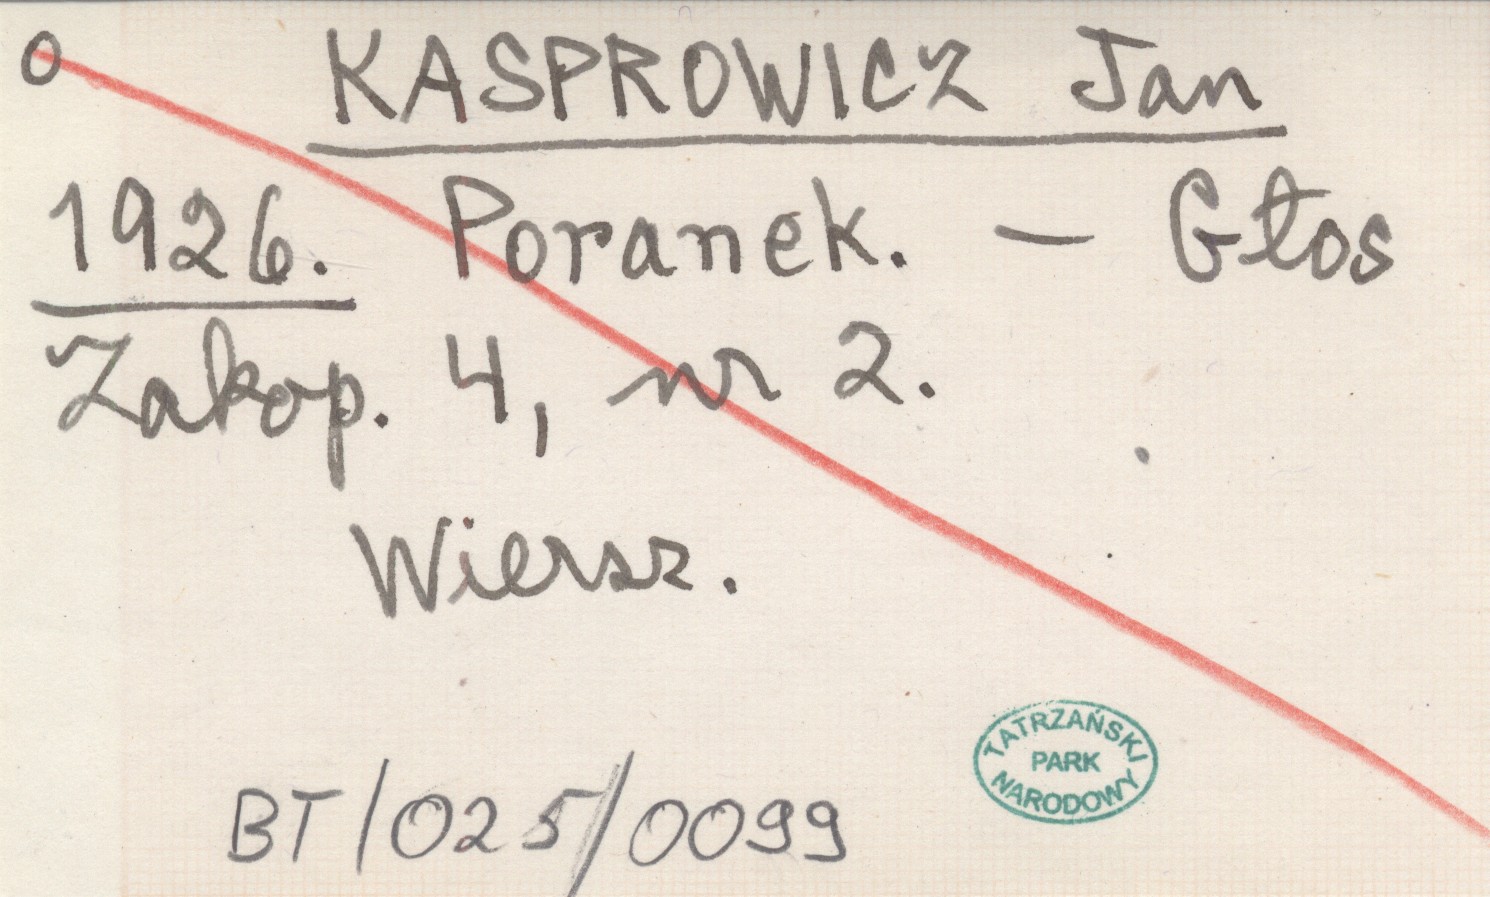 O KASPROWICZ Jan
1926. Poranek. — Głos
Zakop. 4, nr 2.
Wiersz.
TATRZAŃSKI
PARK
NARODOWY
BT/025/0099